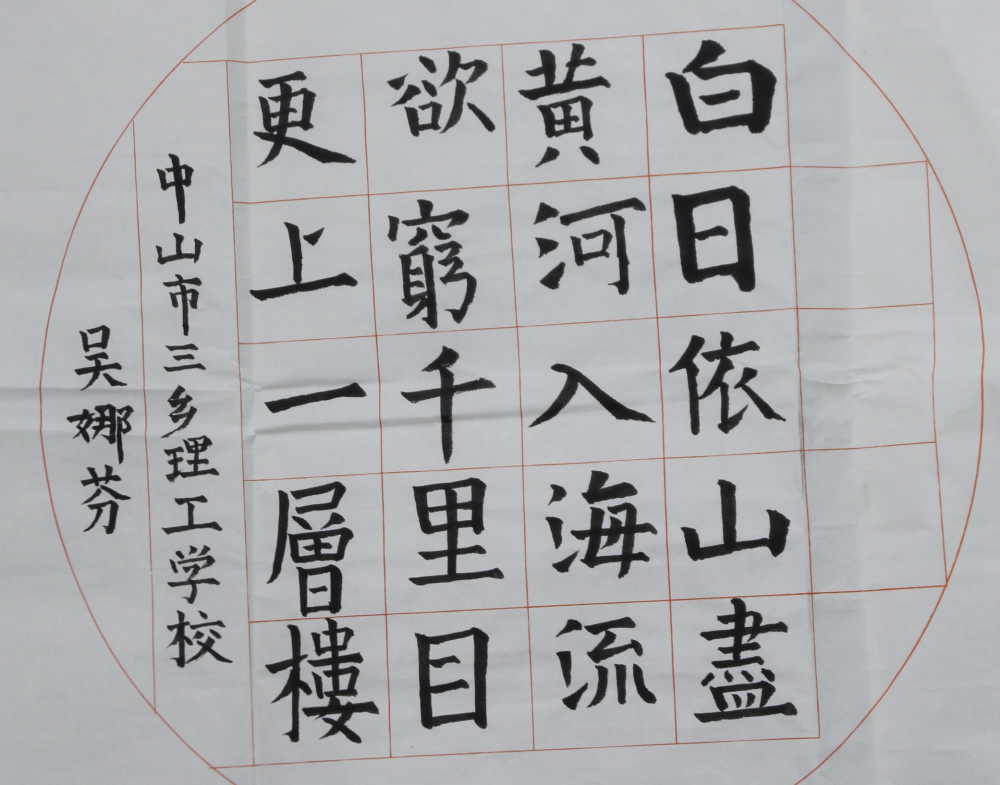 白日依山盡
黃河入海流
欲窮千里目
更上一層樓
中山市三乡理工学校
吴娜芬